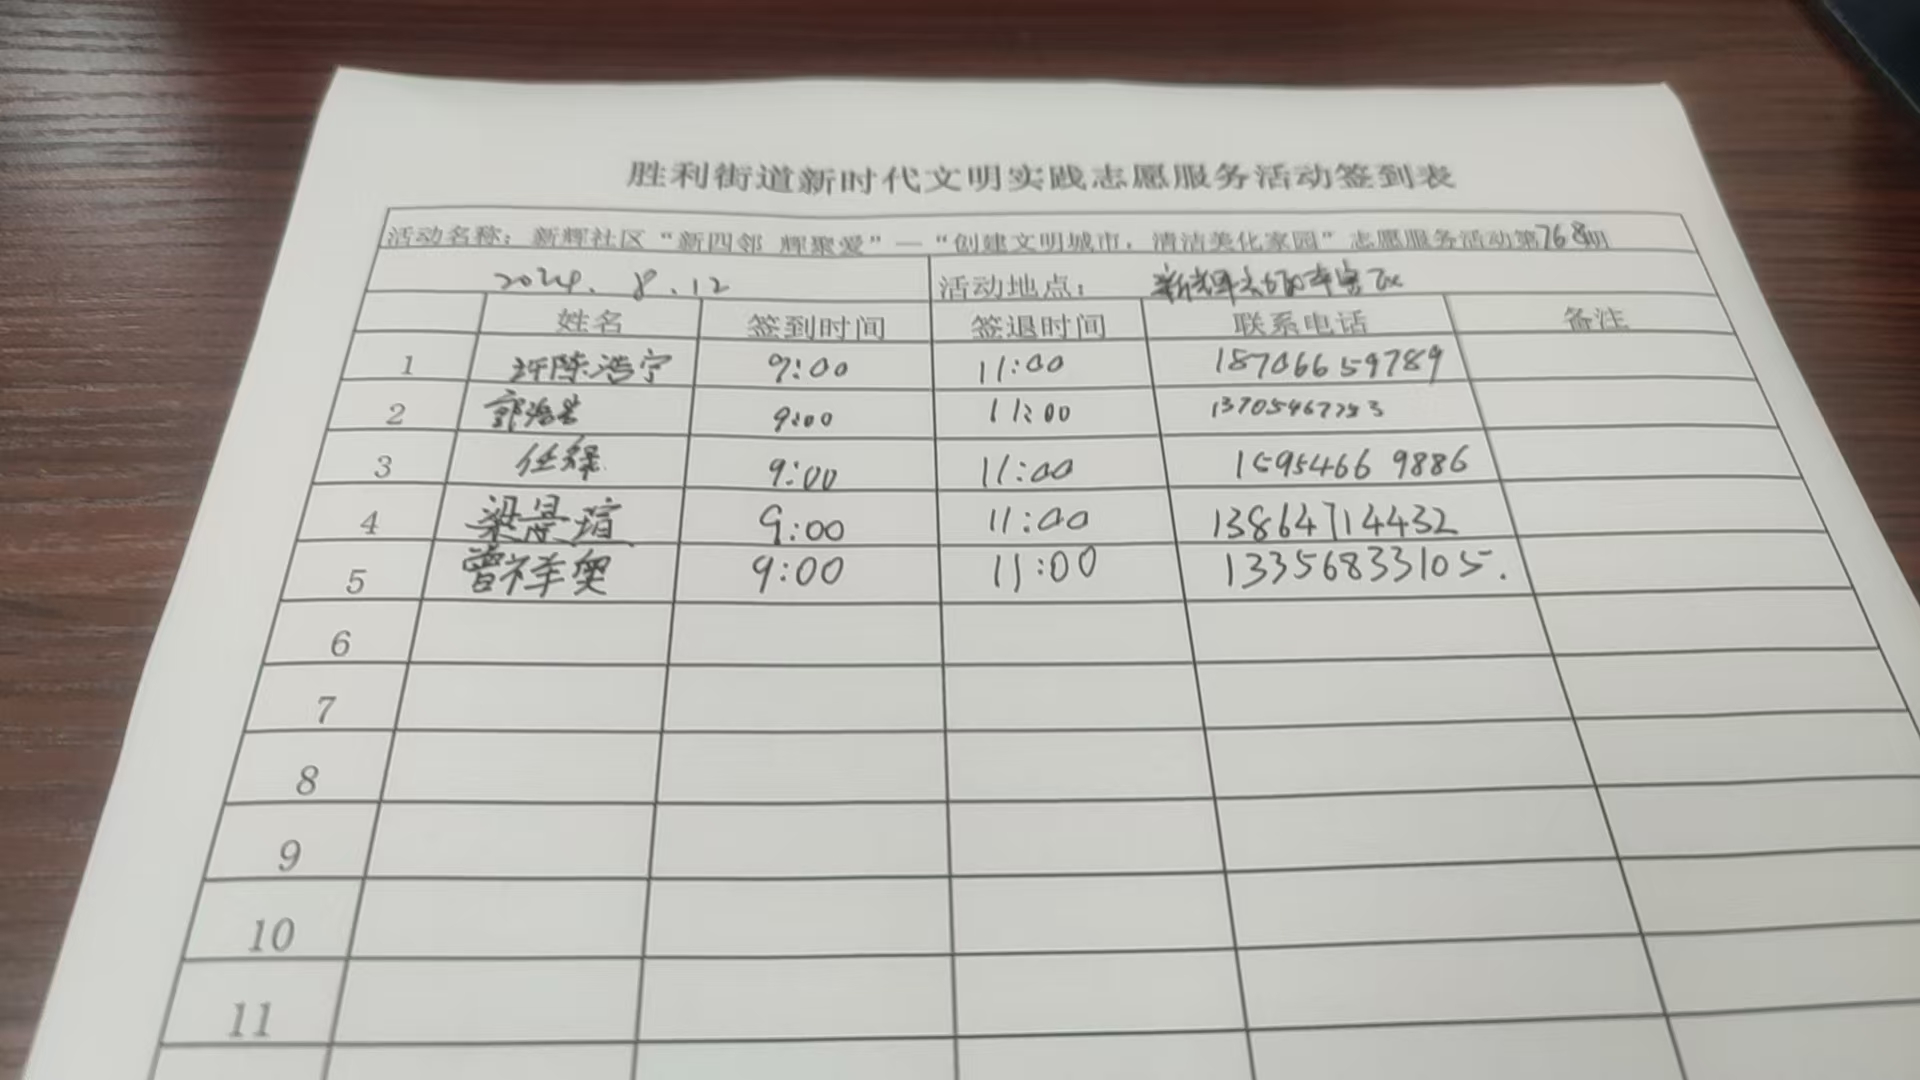 胜利街道新时代文明实践志愿服务活动签到表
活动名称：新辉社区“新四邻 辉聚爱”—“创建文明城市，清洁美化家园”志愿服务活动第768期
2024.8.12 活动地点：
姓名 签到时间 签退时间 联系电话 备注
1 许陈浩宁 9:00 11:00 18706659789
2 9:00 11:00
3 9:00 11:00 15954669886
4 梁景瑄 9:00 11:00 13864714432
5 曾祥奥 9:00 11:00 13356833105.
6
7
8
9
10
11